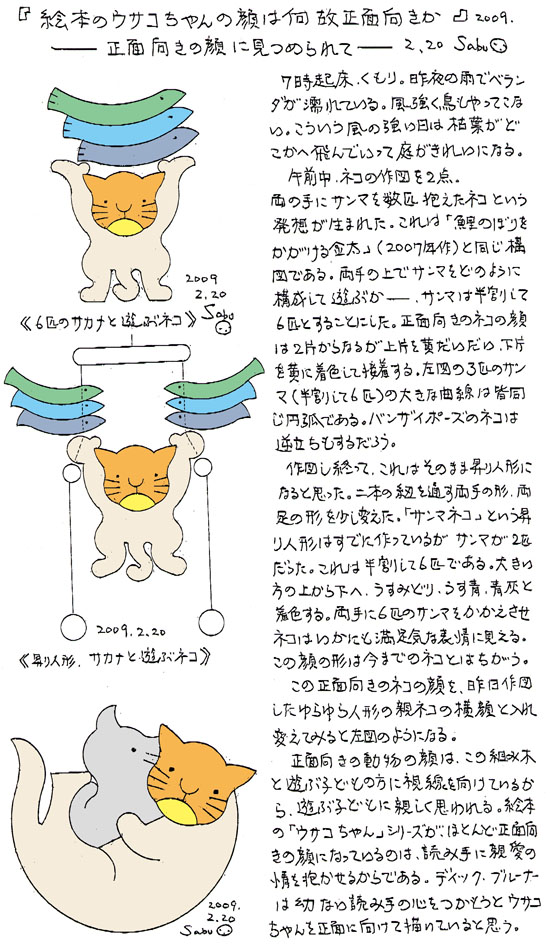 『絵本のウサコちゃんの顔は何故正面向きか』2009.
――正面向きの顔に見つめられて―― 2.20 Sabu
7時起床、くもり。昨夜の雨でベラン
ダが濡れている。風強く、鳥もやってこな
い。こういう風の強い日は枯葉がど
こかへ飛んでいって庭がきれいになる。
午前中、ネコの作図を2点。
両の手にサンマを数匹抱えたネコという
発想が生まれた。これは「鯉のぼりを
かかげる金太」(2007年作)と同じ構
図である。両手の上でサンマをどのように
構成して遊ぶか――、サンマは半割りして
6匹とすることにした。正面向きのネコの顔
は2片からなるが上片を黄だいだい、下片
を黄に着色して接着する。左図の3匹のサン
マ(半割して6匹)の大きな曲線は皆同
じ円弧である。バンザイポーズのネコは
逆立ちもするだろう。
作図し終って、これはそのまま昇り人形に
なると思った。二本の紐を通す両手の形、両
足の形を少し変えた。「サンマネコ」という昇
り人形はすでに作っているが サンマが2匹
だった。これは半割して6匹である。大きい
方の上から下へ、うすみどり、うす青、青灰と
着色する。両手に6匹のサンマをかかえさせ
ネコはいかにも満足気な表情に見える。
この顔の形は今までのネコとはちがう。
この正面向きのネコの顔を、昨日作図
したゆらゆら人形の親ネコの横顔と入れ
変えてみると左図のようになる。
正面向きの動物の顔は、この組み木
と遊ぶ子どもの方に視線を向けているか
ら、遊ぶ子どもに親しく思われる。絵本
の「ウサコちゃん」シリーズが、ほとんど正面向
きの顔になっているのは、読み手に親愛の
情を抱かせるからである。ディック・ブルーナー
は幼ない読み手の心をつかもうとウサコ
ちゃんを正面に向けて描いていると思う。
2009
2.20
Sabu
《6匹のサカナと遊ぶネコ》
2009.2.20
《昇り人形、サカナと遊ぶネコ》
2009.
2.20
Sabu